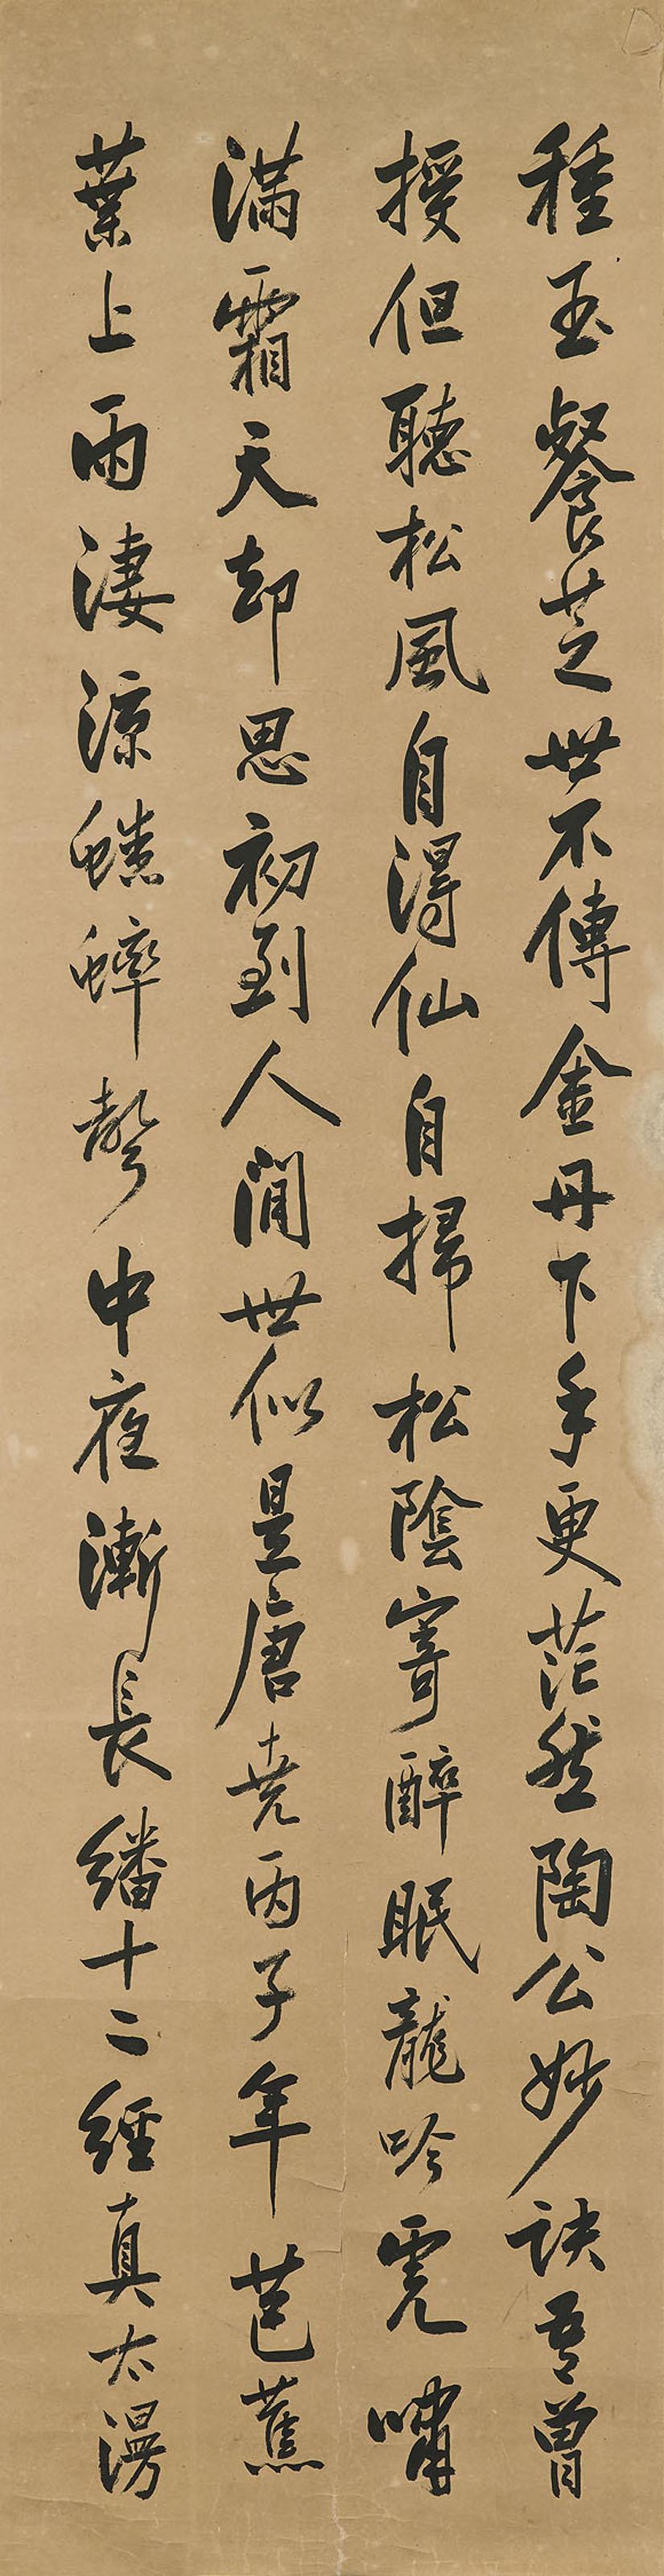 種玉餐芝世不傳金丹下手更茫然陶公妙訣吾曾
授但聽松風自得仙自掃松陰寄醉眠龍吟虎嘯
滿霜天却思初到人間世似是唐堯丙子年芭蕉
葉上雨淒涼蟋蟀聲中夜漸長繙十二經真太漫